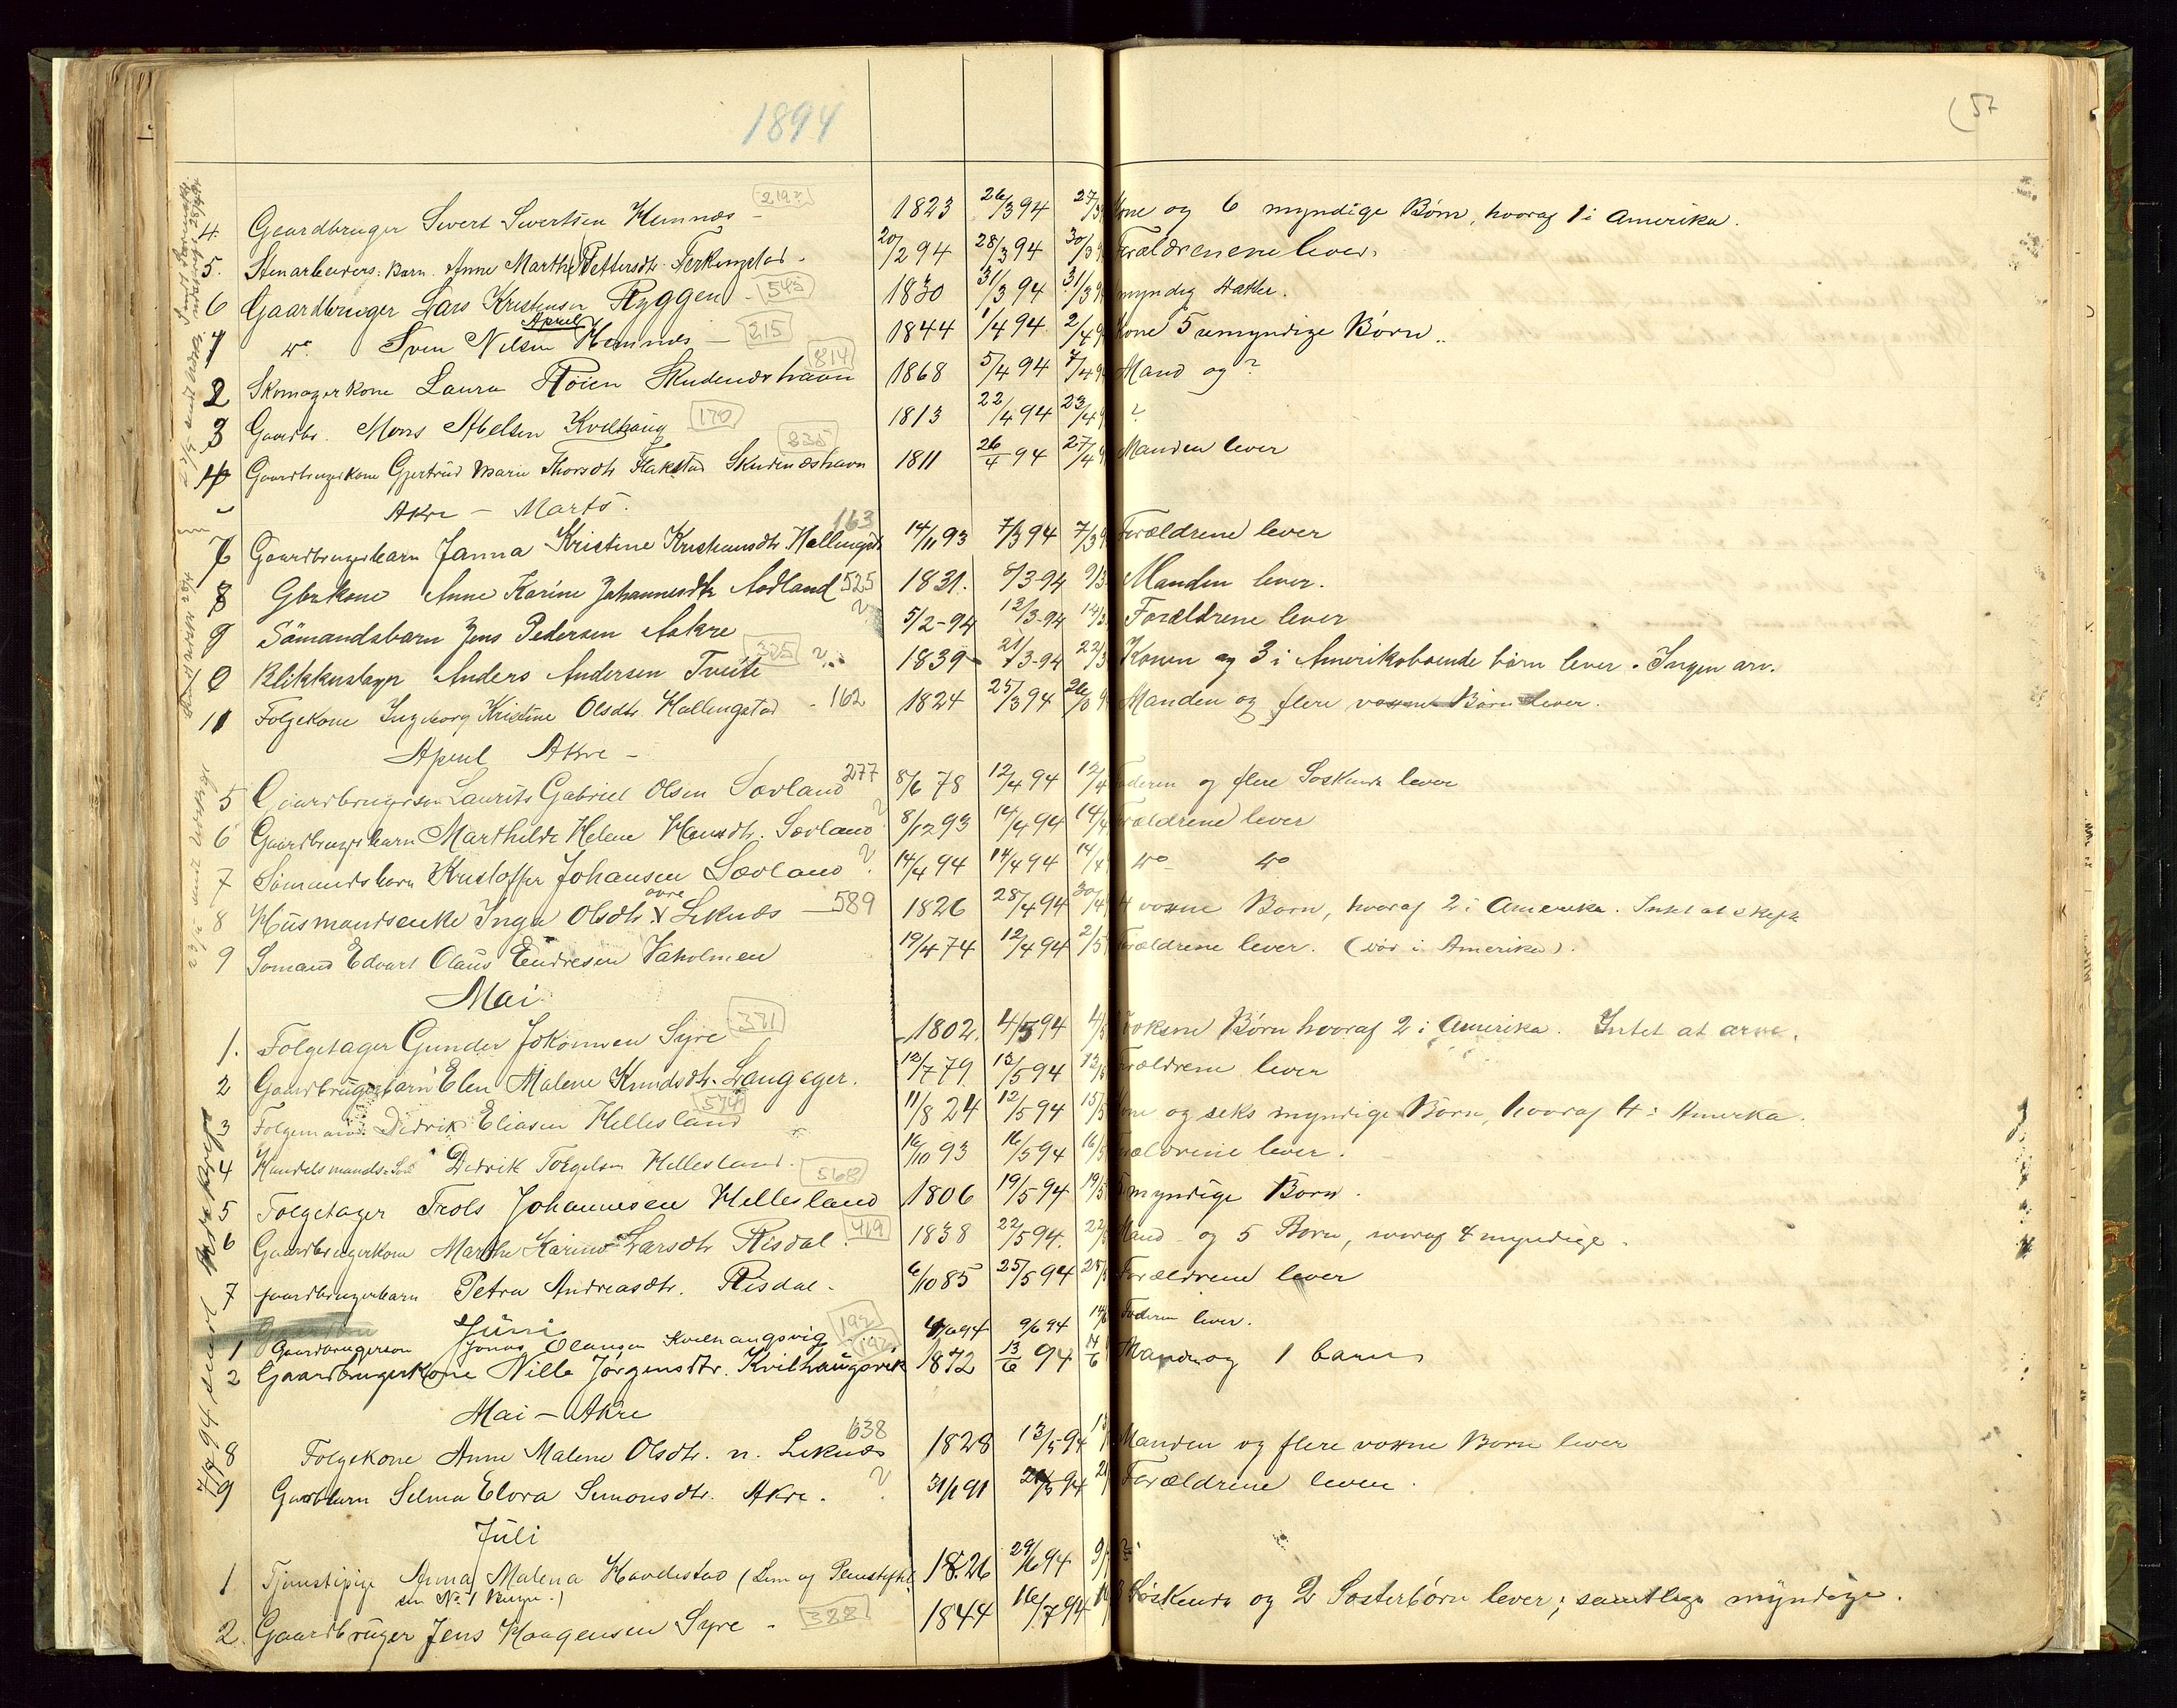 1894
57
4. Gaardbruger Sivert Sivertsen Hemnæs - 219 1823 26/3 94 27/3 Kone og 6 myndige Børn, hvoraf 1 i Amerika.
5. Stenarbeiders Barn Anne Marthe Pettersdtr. Ferkingstad. 20/2 94 28/3 94 30/3 Forældrenene lever.
6 Gaardbruger Lars Kristensen Ryggen - 545 1830 31/3 94 31/3 myndig Datter.
April
1 do Sven Nilsen Hemnæs - 215 1844 1/4 94 2/4 Kone 5 umyndige Børn.
2 Skomagerkone Laura Røien Skudeneshavn 814 1868 5/4 94 7/4 Mand og ?
3 Gaardbr. Mons Abelsen Kvilhaug 170 1813 22/4 94 23/4 ?
4 Gaardbrugerkone Gjertrud Marie Thorsdtr Flakstad Skudeneshavn 835 1811 26/4 94 27/4 Manden lever
Akre - Marts.
7 Gaardbrugerbarn Janna Kristine Kristiansdtr. Hallingst 163 14/11 93 7/3 94 7/3 Forældrene lever
8 Gbrkone Anne Karine Johannesdtr Aadland 525 1831. 8/3-94 9/3 Manden lever.
9 Sömandsbarn Jens Pedersen Aakre ? 5/2-94 12/3-94 14/3 Forældrene lever
10 Blikkenslager Anders Andersen Tveite 325 ? 1839 21/3-94 22/3 Konen og 3 i Amerikaboende børn lever. Ingen arv.
11 Folgekone Ingeborg Kristine Olsdtr Hallingstad - 162 1824 25/3 94 26/3 Manden og flere voxne Børn lever.
April Akre -
5 Gaardbrugerson Laurits Gabriel Olsen Sævland 277 8/6 78 12/4 94 12/4 Faderen og flere Søskende lever
6 Gaardbrugerbarn Marthilde Helene Hansdtr. Sævland ? 8/12 93 14/4 94 14/4 Forældrene lever
7 Sömandsbarn Kristoffer Johansen Sævland ? 14/4 94 14/4 94 14/4 do do
8 Husmandsenke Inga Olsdtr øvre Liknæs - 589 1826 28/4 94 30/4 4 voxne Børn, hvoraf 2 i Amerika. Intet at skifte
9 Sömand Edvart Olaus Endresen Vaholmen 19/4 74 12/4 94 2/5 Forældrene lever. (död i Amerika).
Mai
1. Folgetager Gunder Johannesen Syre 371 1802. 4/5 94 4/5 Voksne Børn hvoraf 2 i Amerika. Intet at arve.
2 Gaardbrugerbarn Elen Malene Knudsdtr. Langager. 12/7 79 12/5 94 12/5 Forældrene lever
3 Folgemand Didrik Eliasen Hellesland 574 11/8 24 12/5 94 15/5 Kone og seks myndige Børn, hvoraf 4 i Amerika.
4 Handelsmands Søn Didrik Torgelsen Hellesland. 16/10 93 16/5 94 16/5 Forældrene lever.
5 Folgetager Trols Johannesen Hellesland 568 1806 19/5 94 19/5 myndige Børn.
6 Gaardbrugerkone Marthe Karine Larsdtr Risdal. 419 1838 22/5 94. 22/5 Mand og 5 Børn, hvoraf 4 myndige.
7 Gaardbrugerbarn Petra Andreasdtr. Risdal. 6/10 85 25/5 94 25/5 Forældrene lever
Juni
1 Gaardbrugerson Jonas Olausen Kvilhaugsvig 192 4/6 94 9/6 94 14/6 Faderen lever.
2 Gaardbrugerkone Nille Jørgensdtr. Kvilhaugsvik 192 1872 13/6 94 14/6 Manden og 1 barn
Mai - Akre
8 Folgekone Anne Malene Olsdtr. n. Liknæs 638 1828 13/5 94 Manden og flere voxne Børn lever
9 Gaardbarn Selma Elora Simonsdtr. Akre. ? 31/1 91 94 Forældrene lever.
Juli
1 Tjenestepige Anna Malena Havdestad (Lem af Pleiestiftel-
sen No. 1 Bergen.) 1826 29/6 94 ?
2. Gaardbruger Jens Haagensen Syre - 388 1844 16/7 94 Søskende og 2 Søsterbørn lever; samtlige myndige.